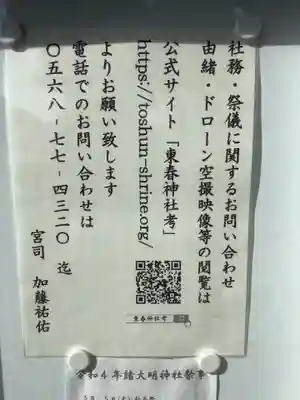 社務・祭儀に関するお問い合わせ
由緒・ドローン空撮映像等の閲覧は
公式サイト「東春神社考」
https://toshun-shrine.org/
よりお願い致します
電話でのお問い合わせは
〇五六八-七七-四三二〇 迄
宮司 加藤祐佑
東春神社考
令和4年諸大明神社祭事